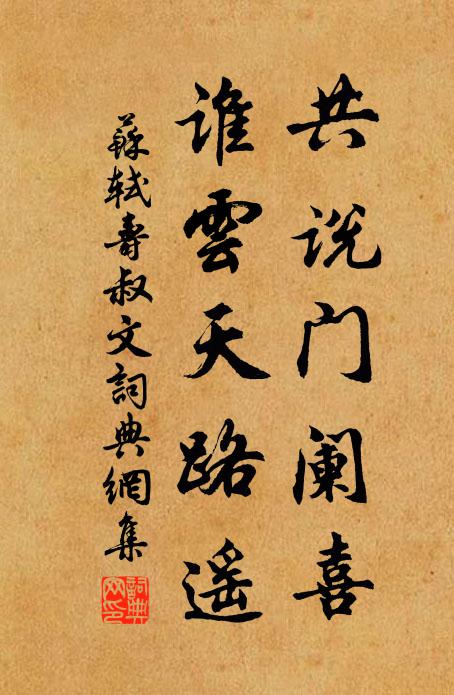 共说门阑喜
谁雲天路遥
蘇軾壽叔文詞典網集
詞典
网印